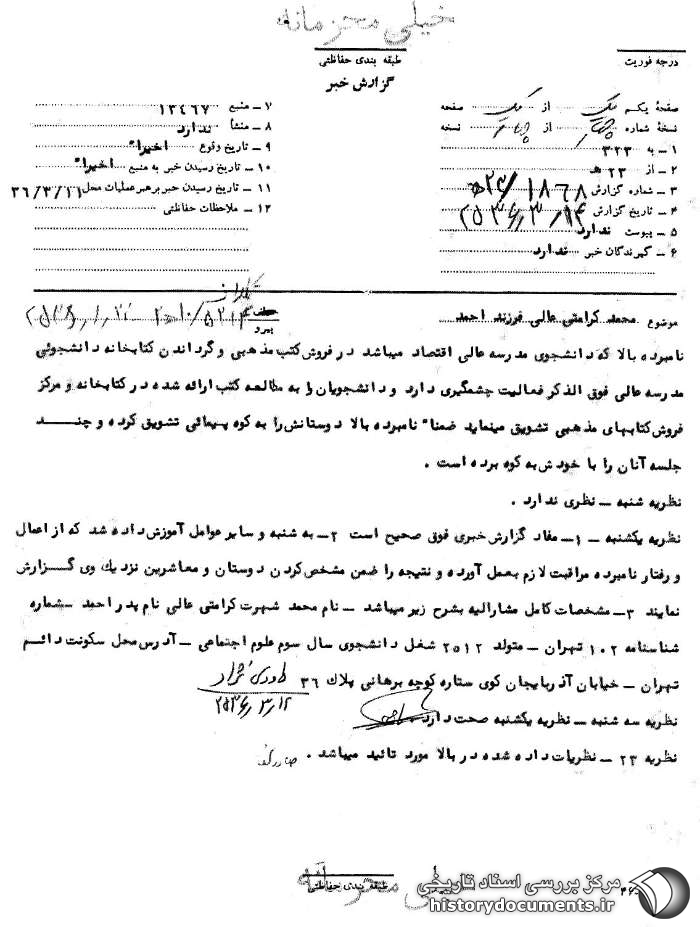 خیلی محرمانه
درجه فوریت
طبقه بندی حفاظتی
گزارش خبر
صفحهٔ یکم یک از یک صفحه
نسخهٔ شماره چهار از چهار نسخه
۱ – به ۳۲۳
۲ – از ۲۳ هـ
۳ – شماره گزارش ۱۸۶۸/ ۲۳هـ
۴ – تاریخ گزارش ۲۵۳۶/۳/۱۴
۵ – پیوست ندارد
۶ – گیرندگان خبر ندارد
۷ – منبع ۱۳۴۶۷
۸ – منشأ ندارد
۹ – تاریخ وقوع اخیرا"
۱۰ – تاریخ رسیدن خبر به منبع اخیرا"
۱۱ – تاریخ رسیدن خبر برهبر عملیات محل ۳۶/۳/۱۱
۱۲ – ملاحظات حفاظتی
موضوع محمد کرامتی عالی فرزند احمد
پیرو
نامبرده بالا که دانشجوی مدرسه عالی اقتصاد میباشد در فروش کتب مذهبی و گرداندن کتابخانه دانشجوئی
مدرسه عالی فوق الذکر فعالیت چشمگیری دارد و دانشجویان را به مطالعه کتب ارائه شده در کتابخانه و مرکز
فروش کتابهای مذهبی تشویق مینماید ضمنا" نامبرده بالا دوستانش را به کوه پیمائی تشویق کرده و چنـــد
جلسه آنان را با خودش به کوه برده است .
نظریه شنبه – نظری ندارد .
نظریه یکشنبه – ۱– مفاد گزارش خبری فوق صحیح است ۲– به شنبه و سایر عوامل آموزش داده شد که از اعمال
و رفتار نامبرده مراقبت لازم بعمل آورده و نتیجه را ضمن مشخص کردن دوستان و معاشرین نزدیك وی گــزارش
نمایند ۳– مشخصات کامل مشارالیه بشرح زیر میباشد – نام محمد شهرت کرامتی عالی نام پدر احمد – شماره
شناسنامه ۱۰۲ تهران – متولد ۲۵۱۲ شغل دانشجوی سال سوم علوم اجتماعی – آدرس محل سکونت دائــم
تهران – خیابان آذربایجان کوی ستاره کوچه برهانی پلاك ۳۶
۲۵۳۶/۳/۱۲
نظریه سه شنبه – نظریه یکشنبه صحت دارد .
نظریه ۲۳ – نظریات داده شده در بالا مورد تائید میباشد .
طبقه بندی حفاظتی
خیلی محرمانه
مرکز بررسی اسناد تاریخی
historydocuments.ir